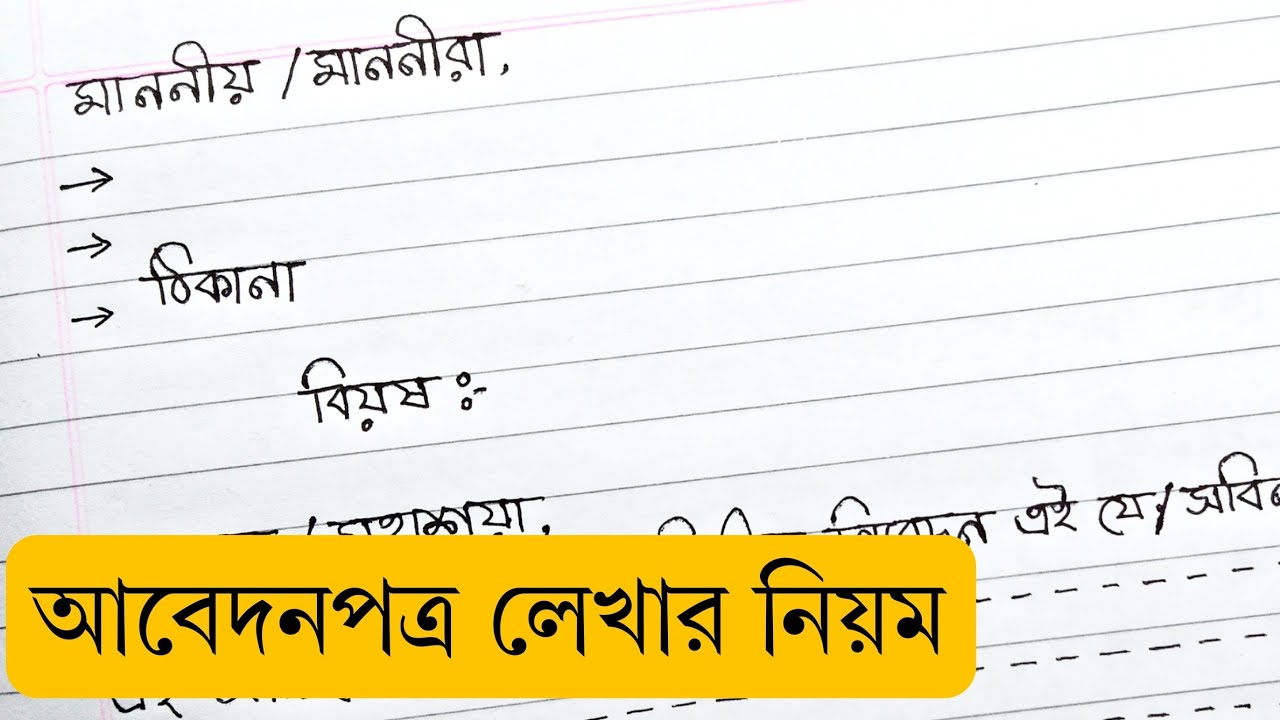 মাননীয় / মাননীরা,
→
→ ঠিকানা
→
বিয়ষ :-
/ মহাশয়া,
নিবেদন এই যে /
আবেদনপত্র লেখার নিয়ম
এই